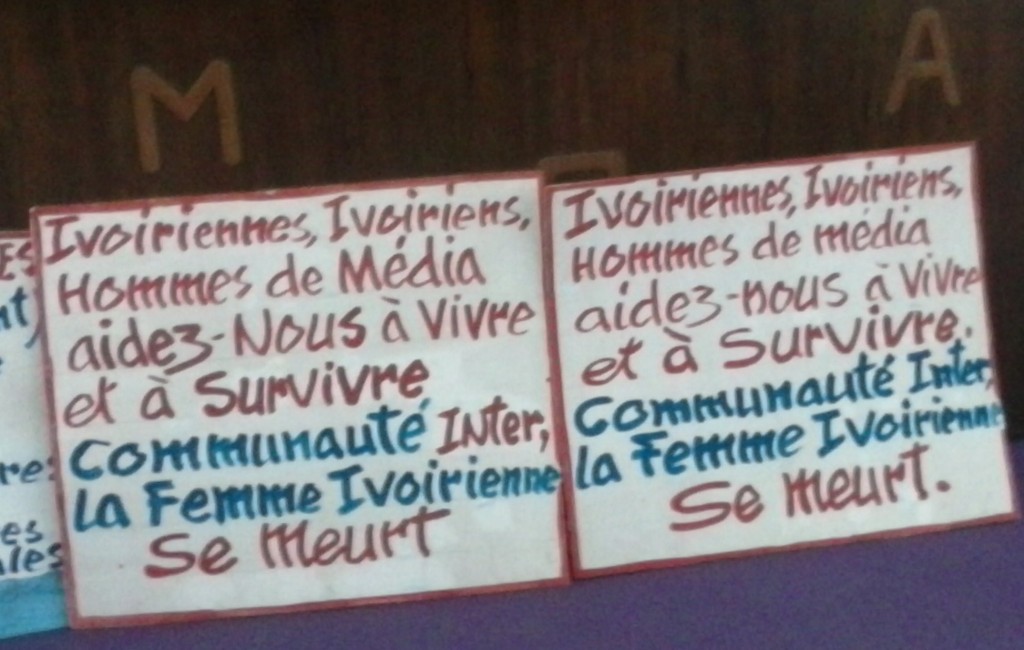 M A
ES
nt)
re:
es
les
Ivoiriennes, Ivoiriens,
Hommes de Média
aidez-Nous à Vivre
et à Survivre
Communauté Inter,
la Femme Ivoirienne
Se meurt
Ivoiriennes, Ivoiriens,
Hommes de média
aidez-nous à Vivre
et à Survivre.
Communauté Inter,
la Femme Ivoirienne
Se meurt.